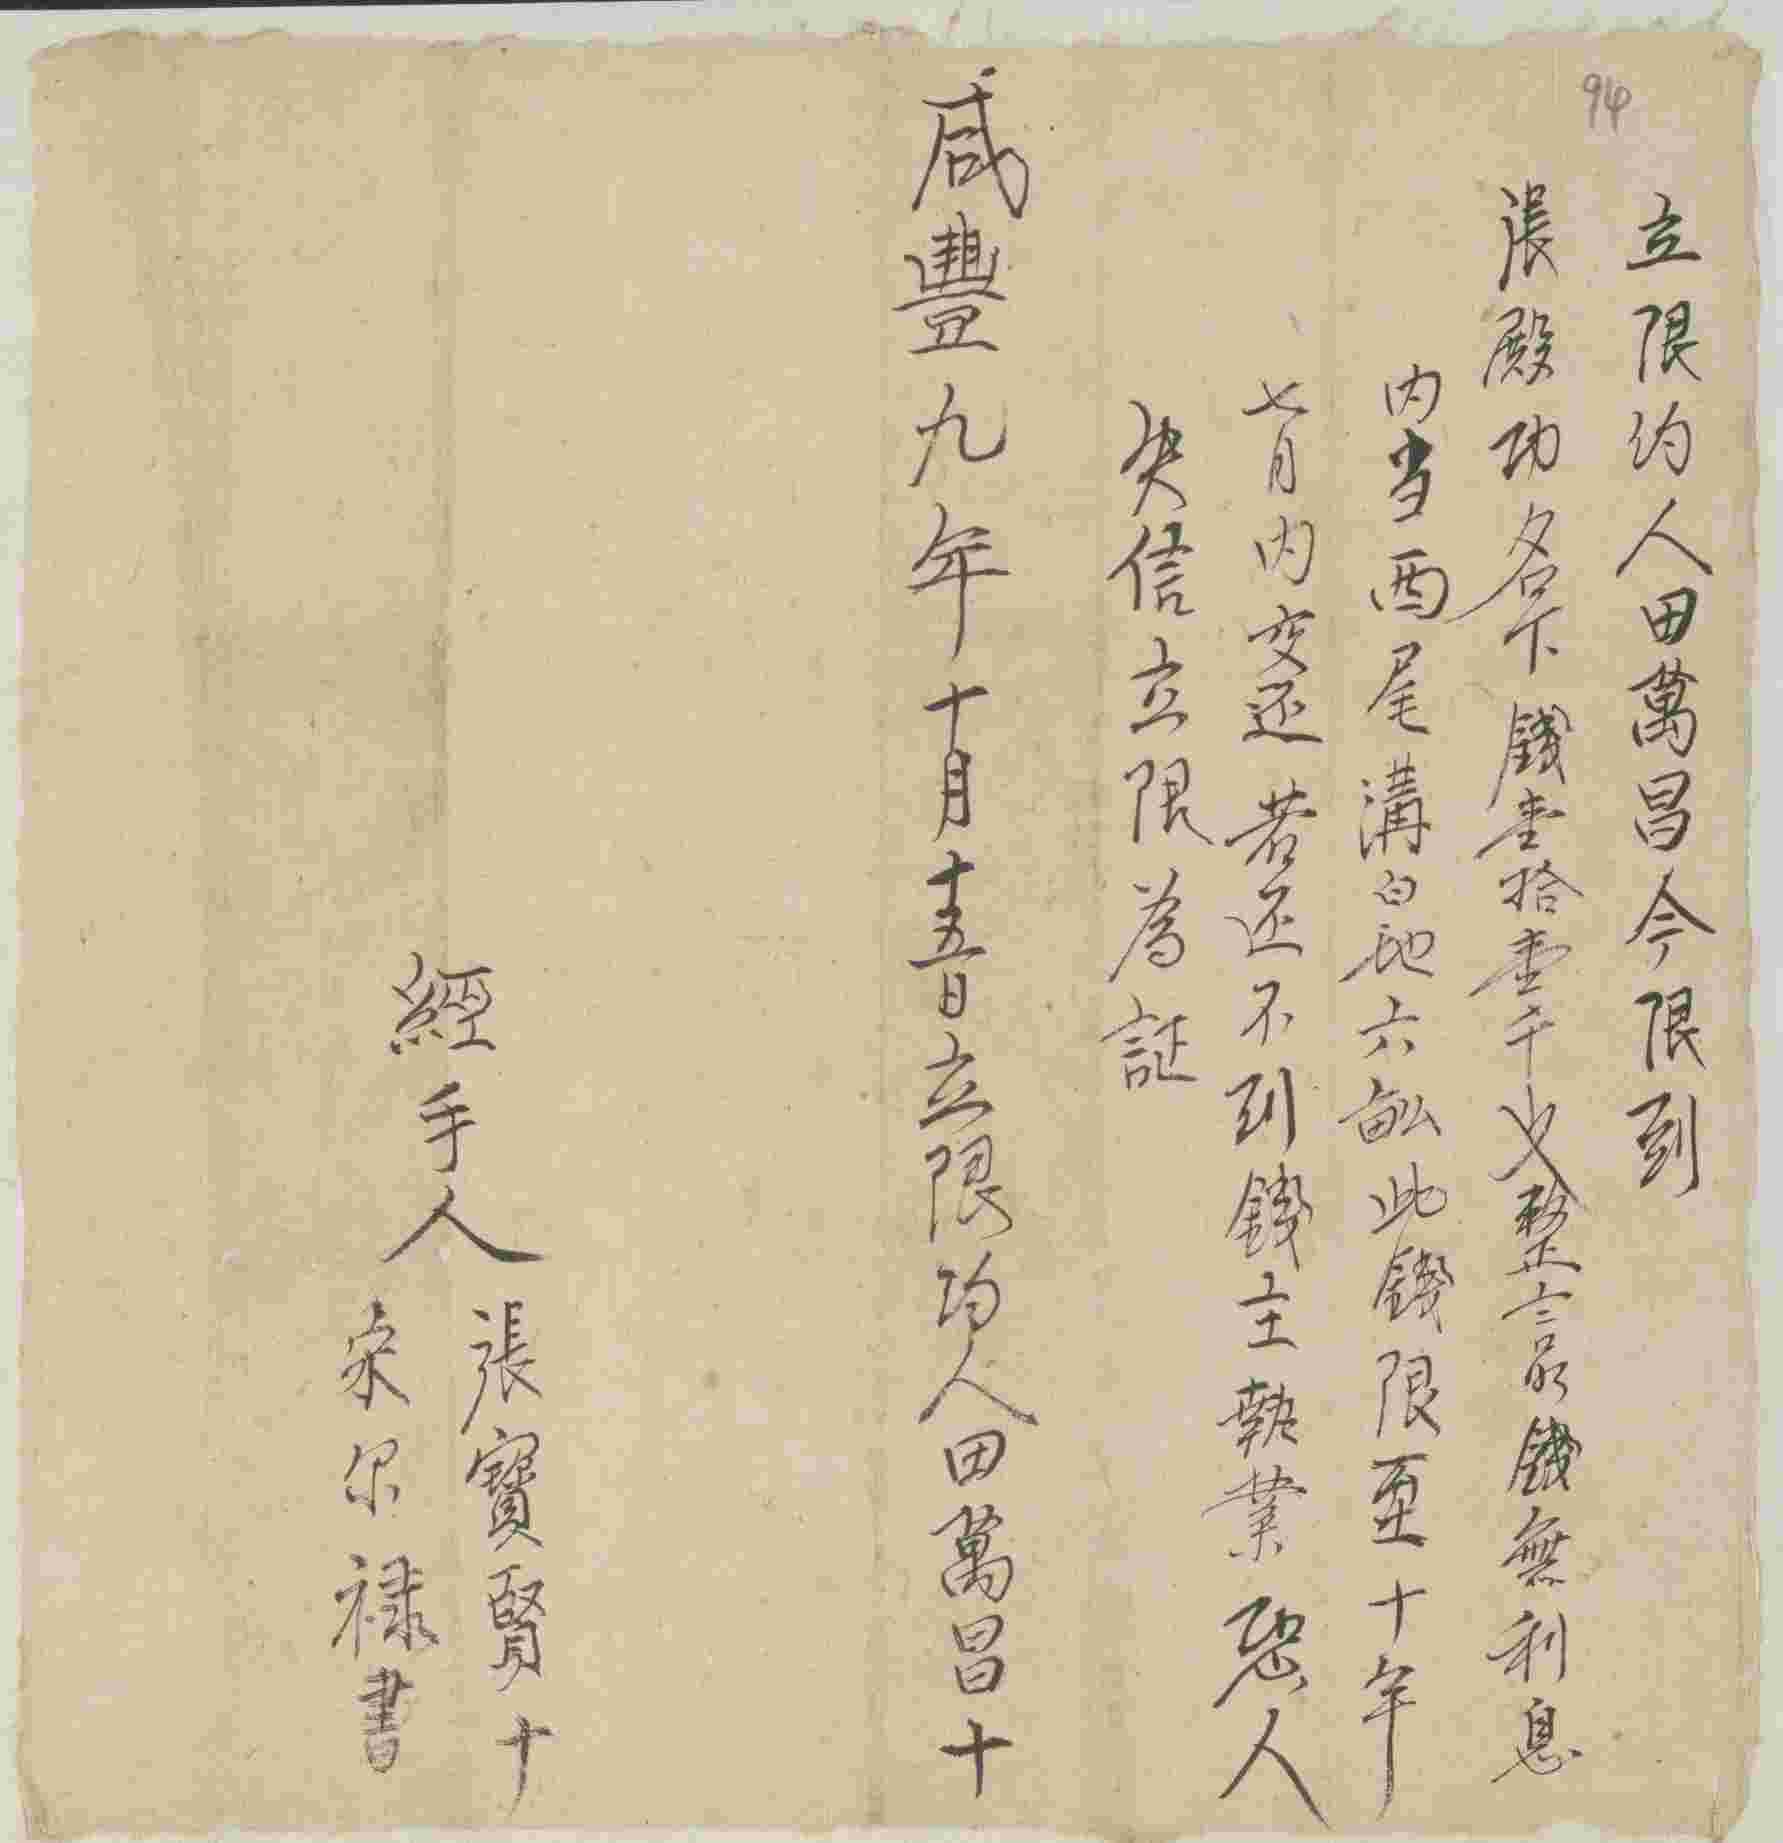 94
立限约人田萬昌今限到
張殿功名下錢壹拾壹千文整言明錢無利息
内当西尾溝白地六畝此錢限至十年
七月内交还若还不到錢主執業恐人
失信立限為証
咸豐九年十月十五日立限约人田萬昌十
經手人
張寶賢十
宋尔禄書